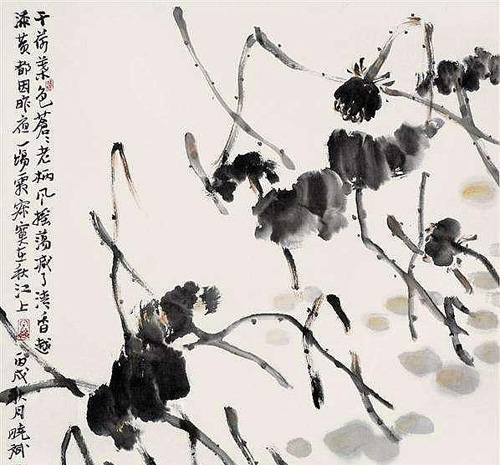 干荷葉色蒼々老柄风摇蕩减了清香越
添黄都因昨夜一場霜寂寞在秋江上 丙戌秋月晓斌